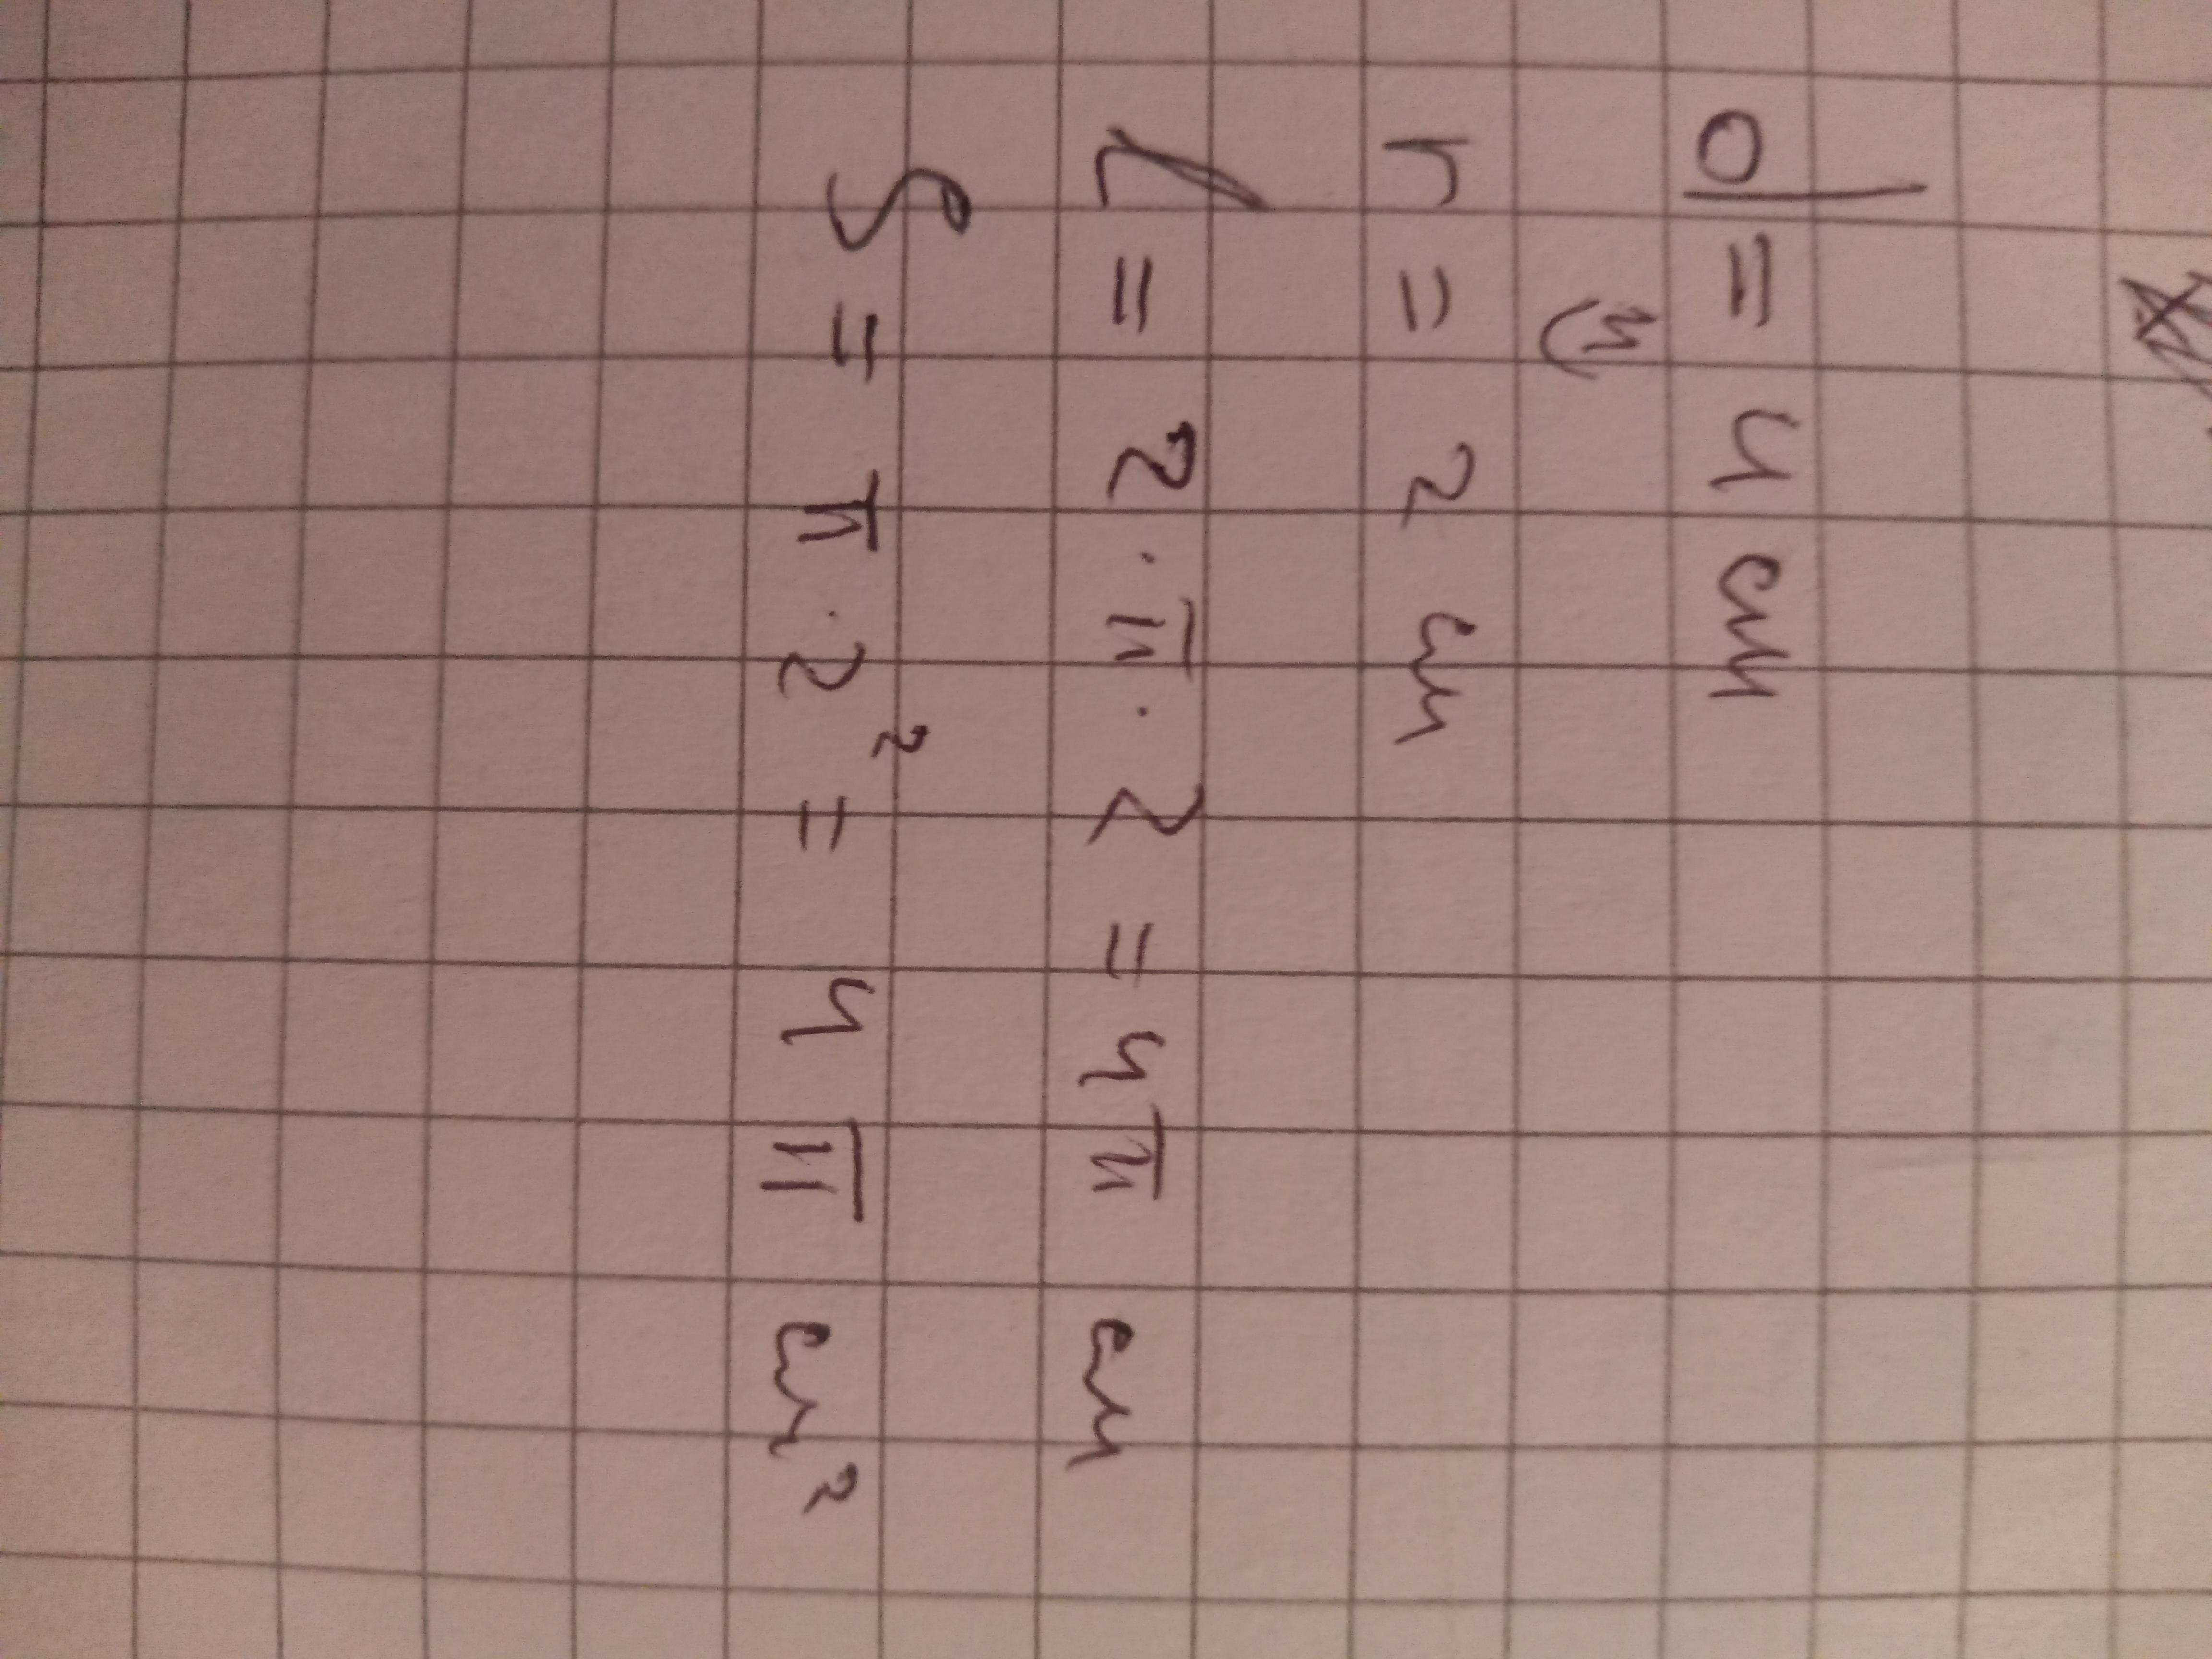 d = 4 см
r = 2 см
l = 2 · π · 2 = 4π см
S = π · 2² = 4π см²